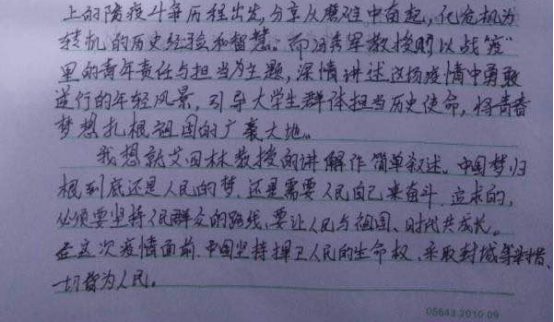 上的防疫斗争历程出发,分享从磨难中奋起,化危机为
转机的历史经验和智慧。而冯秀军教授则以战"疫"
里的青年责任与担当为主题,深情讲述这场疫情中勇敢
逆行的年轻风景,引导大学生群体担当历史使命,将青春
梦想扎根祖国的广袤大地。
我想就艾四林教授的讲解作简单叙述。中国梦归
根到底还是人民的梦,还是需要人民自己来奋斗、追求的,
必须要坚持人民群众的路线,要让人民与祖国、时代共成长。
在这次疫情面前,中国坚持捍卫人民的生命权,采取封城等措施、
一切皆为人民。
05643.2010.09